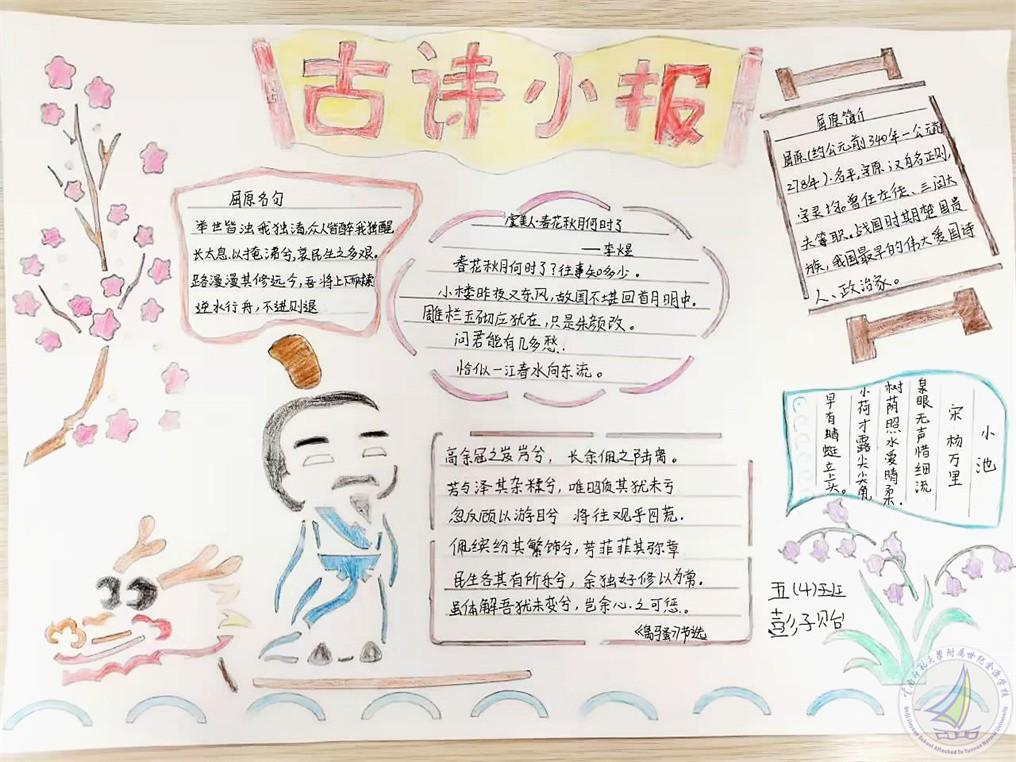 古诗小报
屈原名句
举世皆浊我独清众人皆醉我独醒
长太息以掩涕兮,哀民生之多艰。
路漫漫其修远兮,吾将上下而求索
逆水行舟,不进则退
虞美人·春花秋月何时了
——李煜
春花秋月何时了?往事知多少。
小楼昨夜又东风,故国不堪回首月明中。
雕栏玉砌应犹在,只是朱颜改。
问君能有几多愁.
恰似一江春水向东流。
屈原简介
屈原(约公元前340年—公元前
278年).名平,字原.又自名正则,
字灵均。曾任左徒、三闾大
夫等职。战国时期楚国贵
族,我国最早的伟大爱国诗
人、政治家。
小池
宋 杨万里
泉眼无声惜细流
树荫照水爱晴柔.
小荷才露尖尖角
早有蜻蜓立上头。
高余冠之岌岌兮, 长余佩之陆离。
芳与泽其杂糅兮,唯昭质其犹未亏
忽反顾以游目兮 将往观乎四荒.
佩缤纷其繁饰兮,芳菲菲其弥章
民生各其有所乐兮,余独好修以为常。
虽体解吾犹未变兮,岂余心之可惩。
《离骚》节选
五(4)班
彭子贻
云南师范大学附属世纪金源学校